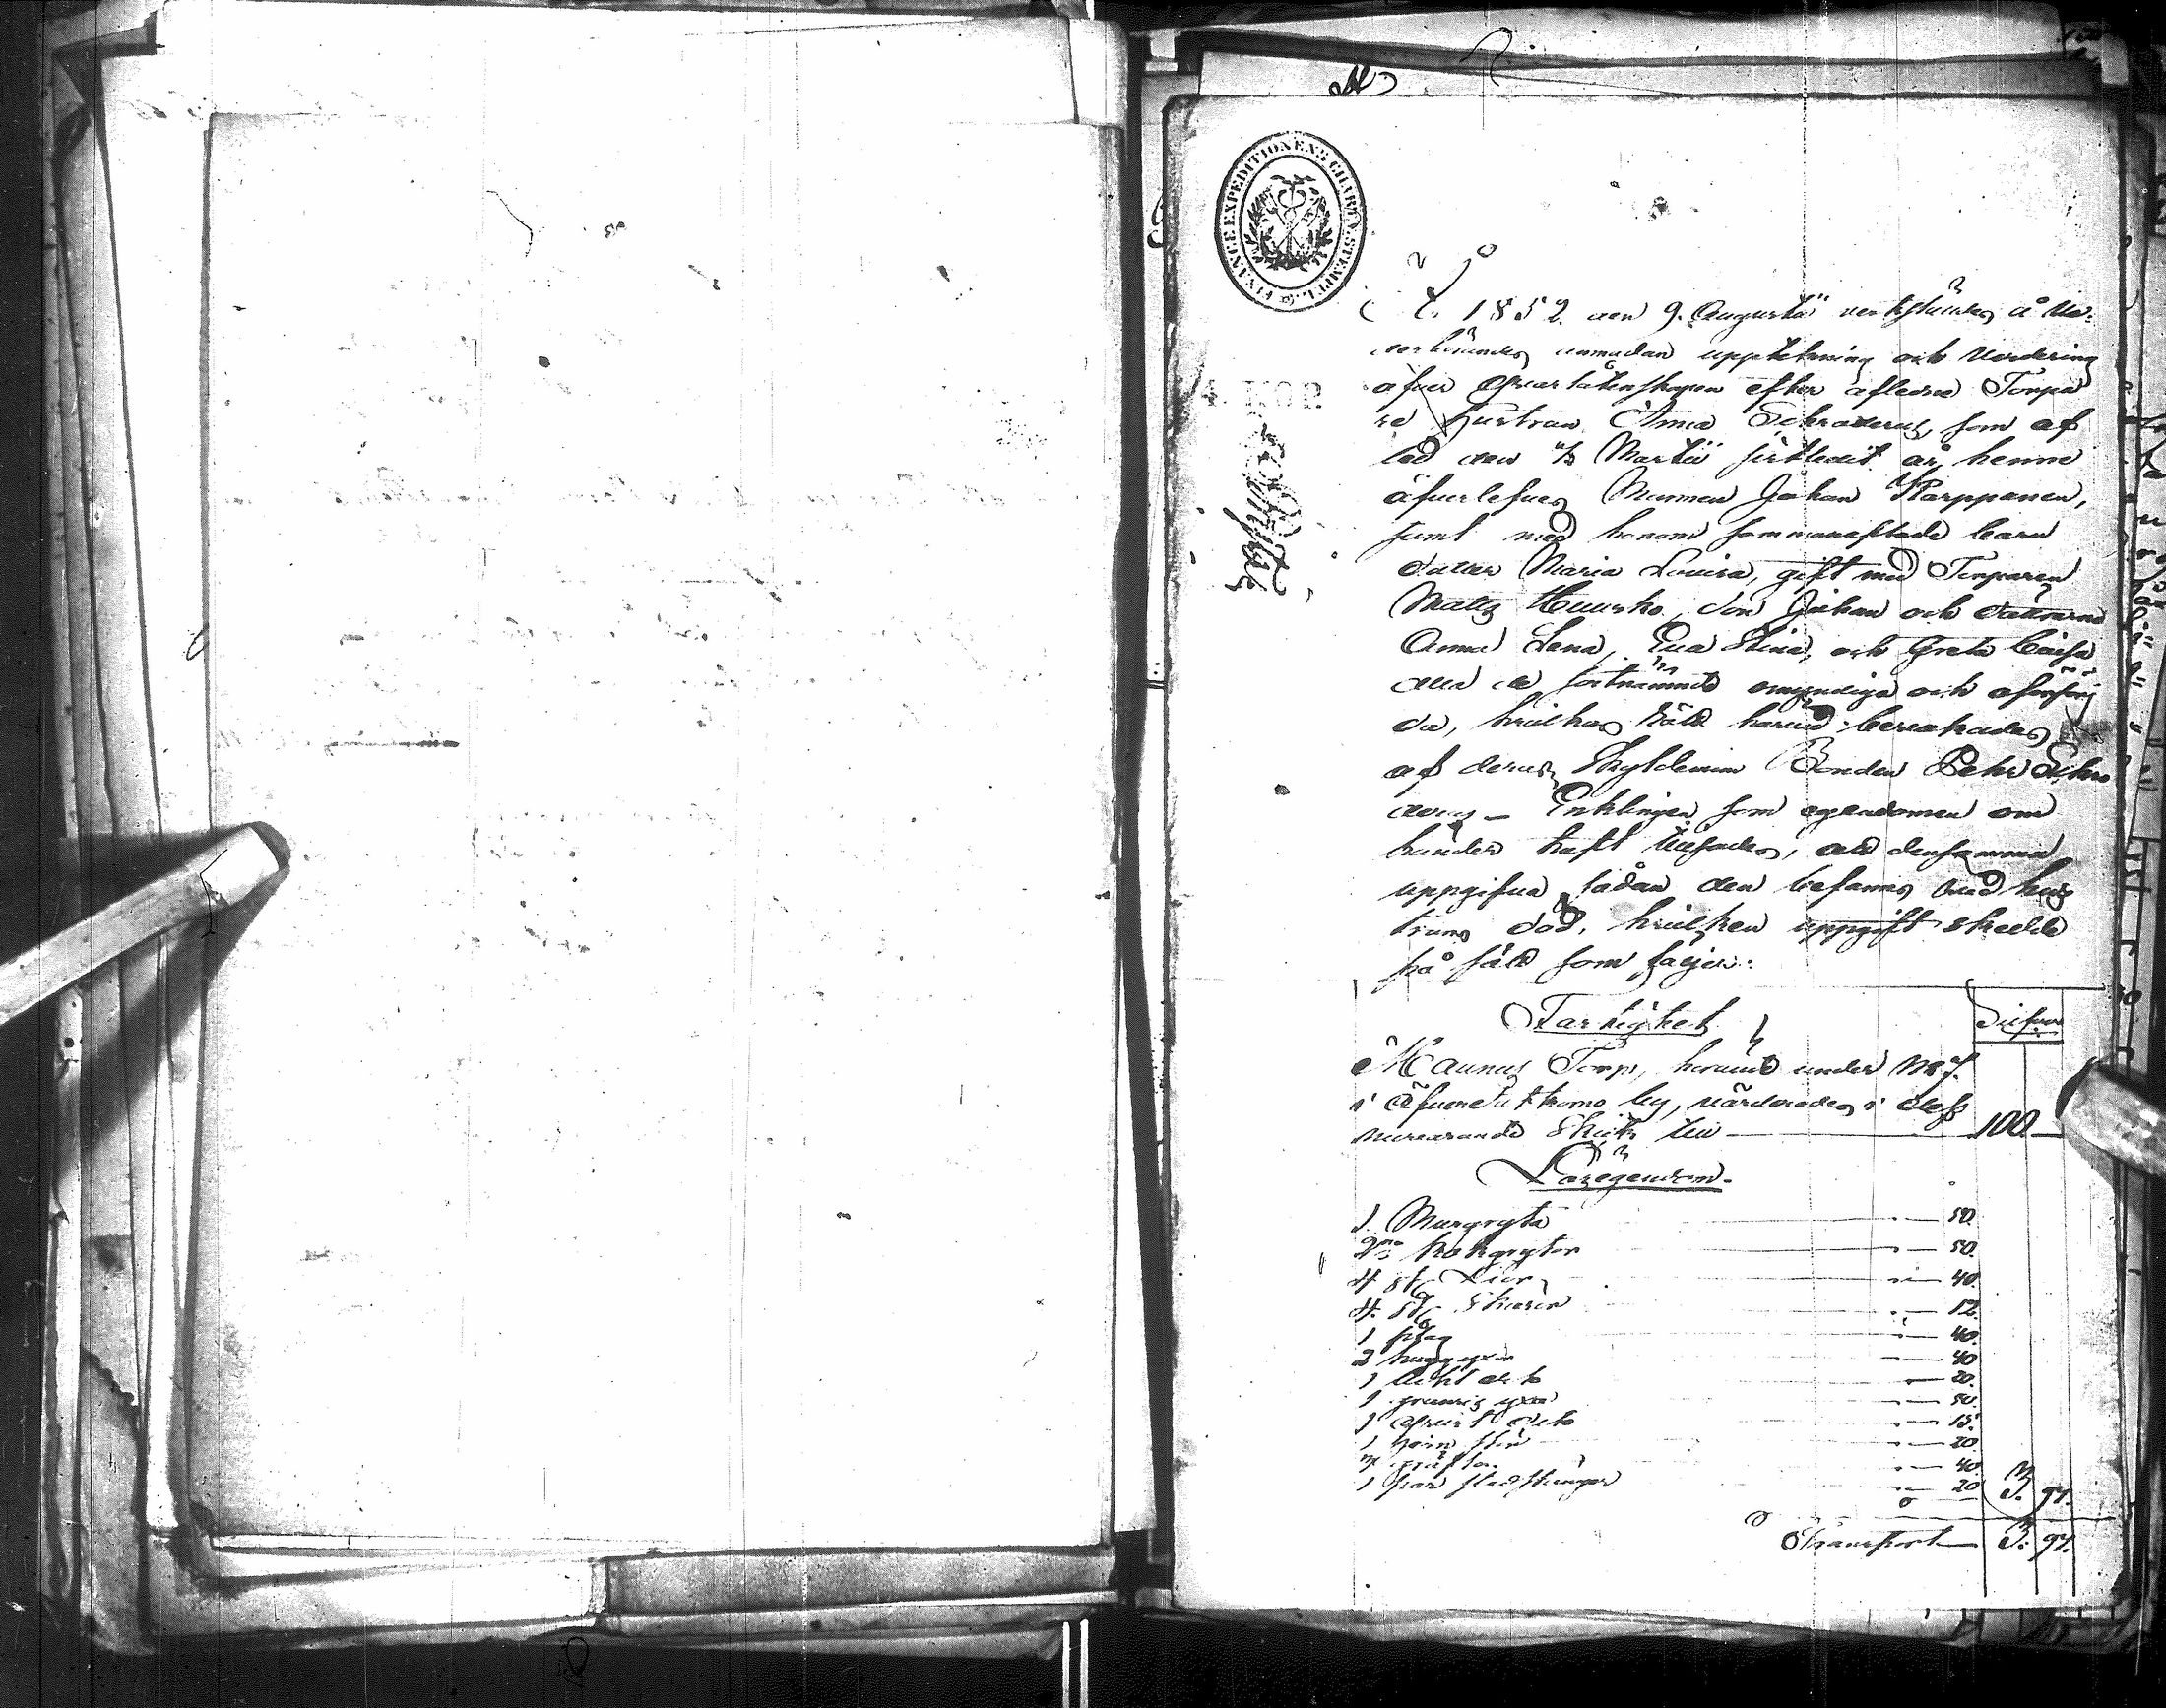 FINANCE EXPEDITIONENS CHARTÆ STEMPEL
4. KOP.
År 1852. den 9. Augusti verkställdes å Ve-
derbörandes anmodan uppteckning och Värdering
öfver Qvarlåtenskapen efter aflidne Torpa
re hustrun Anna Schroderus, som af
led den Martii sistledit år, henne
öfverlefves Mannen Johan Karppanen,
samt med honom sammanaflade barn
dotter Maria Lovisa, gift med Torparen
Matts Huusko, Son Johan och döttrarne
Anna Lena, Eva Stina, och Greta Caisa
alla de sistnämnde omyndiga och oförsörj
da, hvilkas rätt härvid bevakades
af deras Skyldeman Bonden Pehr Schro
derus – Enklingen som egendomen om
händer haft tillsades, att densamma
uppgifva sådan den befanns vid hus
truns död, hvilken uppgift skedde
på sätt som följer:
Fastighet Silfver
Maunus Torp, hörande under No 7.
i Öfver by, värderades i dess
nuvarande Skick till — 100 —
Lösegendom.
1 Murgryta — 50.
2ne kokgrytor — 50.
4 st Liar — 40.
4. st Skäror — 12.
1 plog — 40.
2 huggyxor — 40
1 dito — 20.
1 yxa — 50.
1 dito — 15.
1 — 20.
— 40.
1 par — 20 3. 97.
Transport — 3. 97.